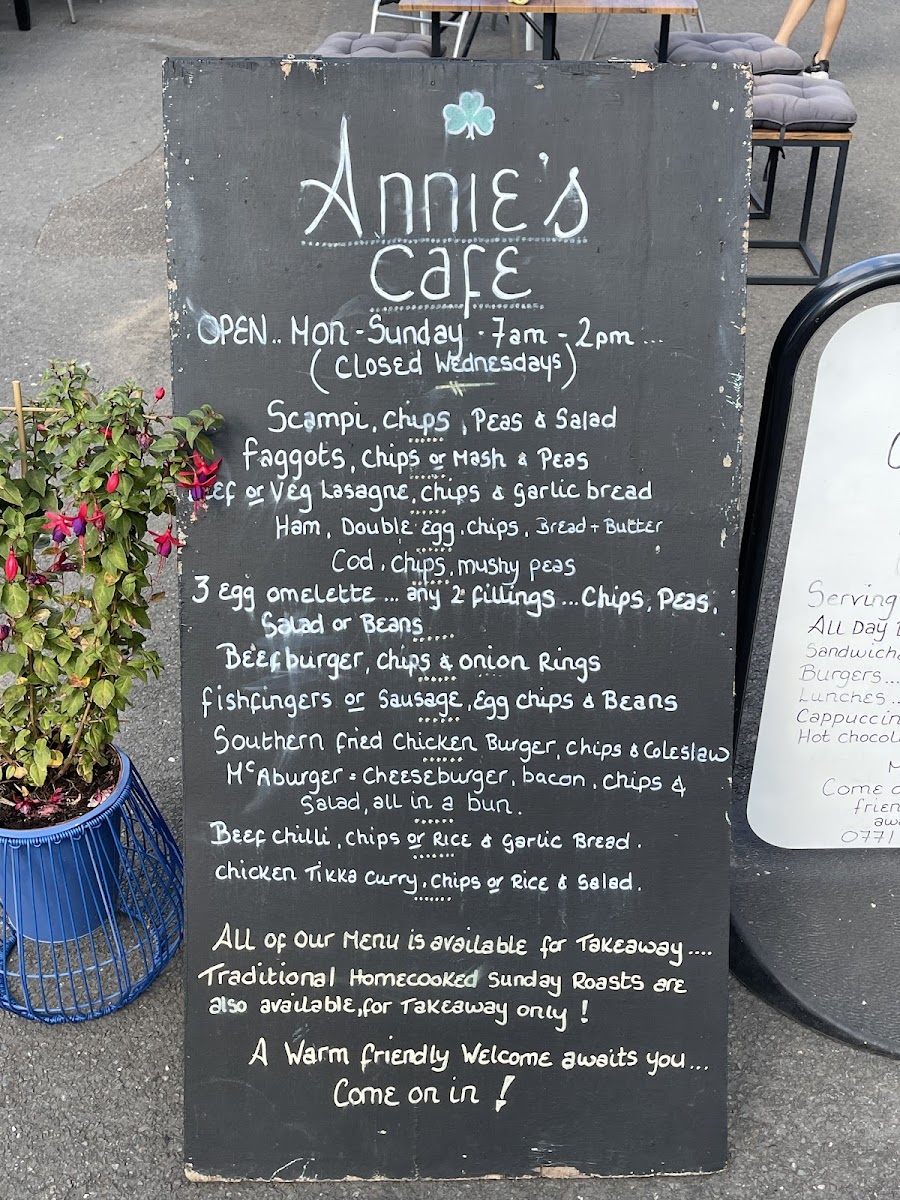 Annie's
Cafe
OPEN.. Mon - Sunday - 7am - 2pm ...
(Closed Wednesdays)
Scampi, Chips, Peas & Salad
Faggots, Chips or Mash & Peas
Beef or Veg Lasagne, Chips & Garlic bread
Ham, Double Egg, chips, Bread + Butter
Cod, Chips, mushy peas
3 Egg omelette ... any 2 fillings ... Chips, Peas,
Salad or Beans
Beefburger, Chips & onion Rings
Fishfingers or Sausage, Egg chips & Beans
Southern Fried Chicken Burger, Chips & Coleslaw
McAburger = Cheeseburger, bacon, chips &
Salad, all in a bun.
Beef Chilli, Chips or Rice & Garlic Bread.
Chicken Tikka Curry, Chips or Rice & Salad.
All of Our Menu is available for Takeaway ....
Traditional Homecooked Sunday Roasts are
also available, for Takeaway only !
A Warm friendly Welcome awaits you...
Come on in !
Serving
All Day
Burgers...
Lunches...
Hot
Come
0771